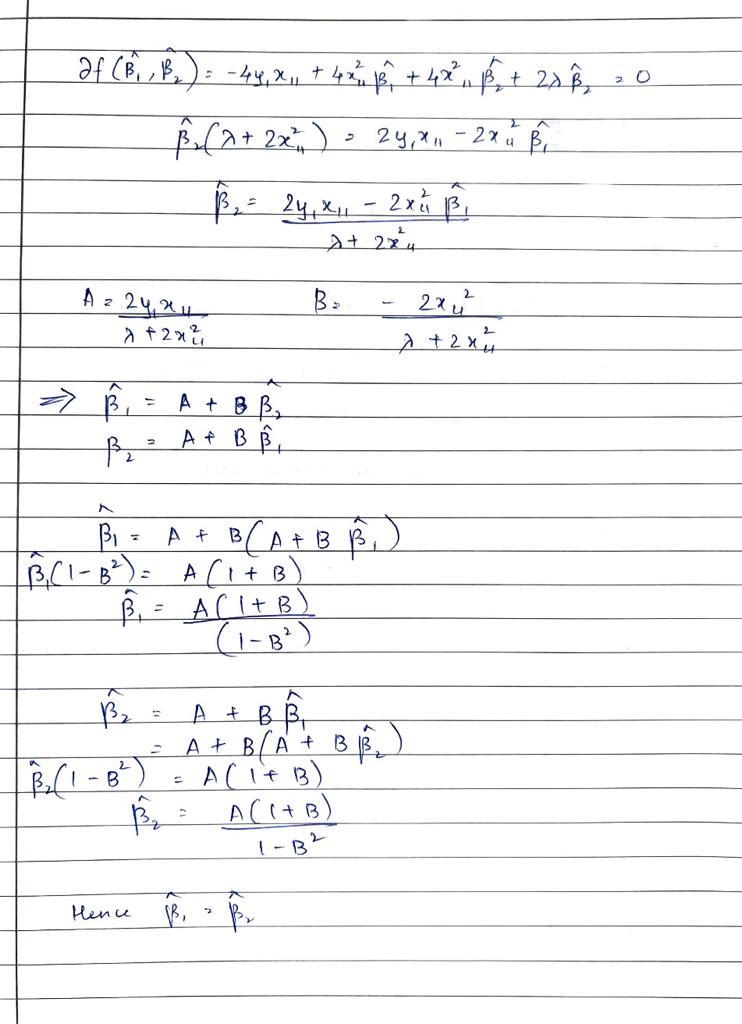 ∂f (β̂₁, β̂₂) = -4y₁x₁₁ + 4x²₁₁ β̂₁ + 4x²₁₁ β̂₂ + 2λ β̂₂ = 0
β̂₂(λ + 2x²₁₁) = 2y₁x₁₁ - 2x²₁₁ β̂₁
β̂₂ = (2y₁x₁₁ - 2x²₁₁ β̂₁) / (λ + 2x²₁₁)
A = 2y₁x₁₁ / (λ + 2x²₁₁)    B = - 2x₁₁² / (λ + 2x²₁₁)
⇒ β̂₁ = A + B β̂₂
β₂ = A + B β̂₁
β̂₁ = A + B(A + B β̂₁)
β̂₁(1 - B²) = A(1 + B)
β̂₁ = A(1 + B) / (1 - B²)
β̂₂ = A + B β̂₁
= A + B(A + B β̂₂)
β̂₂(1 - B²) = A(1 + B)
β̂₂ = A(1 + B) / 1 - B²
Hence β̂₁ = β̂₂